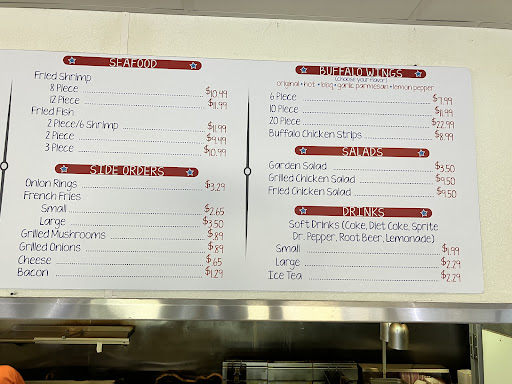 SEAFOOD
Fried Shrimp
8 Piece $10.99
12 Piece $11.99
Fried Fish
2 Piece/6 Shrimp $11.99
2 Piece $9.49
3 Piece $10.99
SIDE ORDERS
Onion Rings $3.29
French Fries
Small $2.65
Large $3.50
Grilled Mushrooms $.89
Grilled Onions $.89
Cheese $.65
Bacon $1.29
BUFFALO WINGS
(choose your flavor)
original • hot • bbq • garlic parmesan • lemon pepper
6 Piece $7.99
10 Piece $11.99
20 Piece $22.99
Buffalo Chicken Strips $8.99
SALADS
Garden Salad $3.50
Grilled Chicken Salad $9.50
Fried Chicken Salad $9.50
DRINKS
Soft Drinks (Coke, Diet Coke, Sprite
Dr. Pepper, Root Beer, Lemonade)
Small $1.99
Large $2.29
Ice Tea $2.29